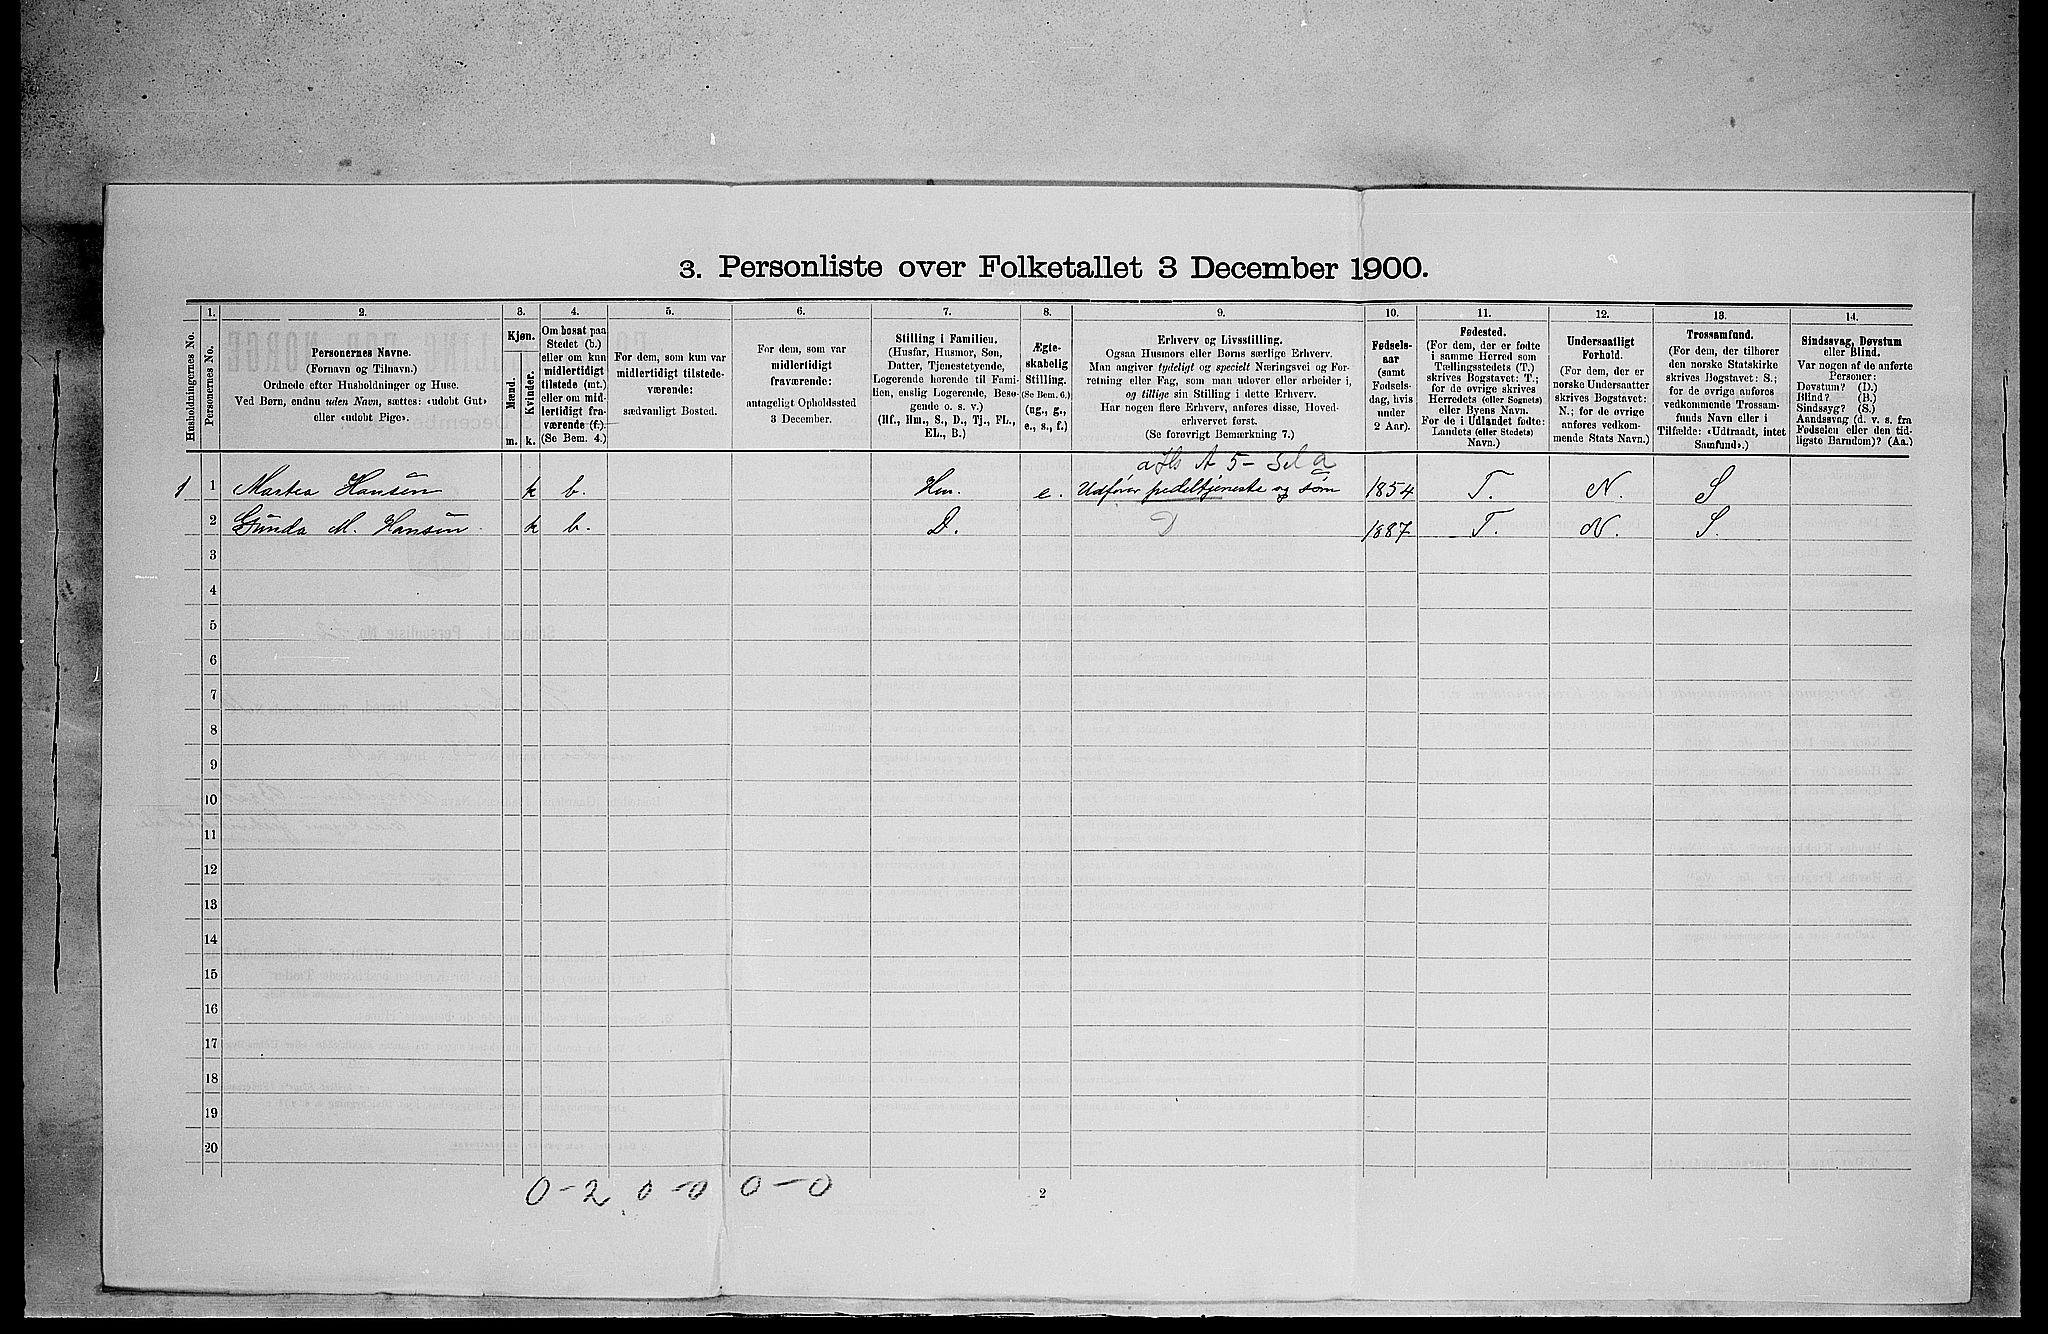 3. Personliste over Folketallet 3 December 1900.
1. 2. 3. 4. 5. 6. 7. 8. 9. 10. 11. 12. 13. 14.
Husholdningernes No.
Personernes No.
Personernes Navne.
(Fornavn og Tilnavn.)
Ordnede efter Husholdninger og Huse.
Ved Børn, endnu uden Navn, sættes: «udøbt Gut»
eller «udøbt Pige».
Kjøn.
Mænd.
Kvinder.
m. k.
Om bosat paa
Stedet (b.)
eller om kun
midlertidigt
tilstede (mt.)
eller om mid-
lertidigt fra-
værende (f.).
(Se Bem. 4.)
For dem, som kun var
midlertidigt tilstede-
værende:
sædvanligt Bosted.
For dem, som var
midlertidigt
fraværende:
antageligt Opholdssted
3 December.
Stilling i Familien.
(Husfar, Husmor, Søn,
Datter, Tjenestetyende,
Logerende hørende til Fami-
lien, enslig Logerende, Besø-
gende o. s. v.)
(Hf., Hm., S., D., Tj., FL.,
EL., B.)
Ægte-
skabelig
Stilling.
(Se Bem. 6.)
(ug., g.,
e., s., f.)
Erhverv og Livsstilling.
Ogsaa Husmors eller Børns særlige Erhverv.
Man angiver tydeligt og specielt Næringsvei og For-
retning eller Fag, som man udøver eller arbeider i,
og tillige sin Stilling i dette Erhverv.
Har nogen flere Erhverv, anføres disse, Hoved-
erhvervet først.
(Se forøvrigt Bemærkning 7.)
Fødsels-
aar
(samt
Fødsels-
dag, hvis
under
2 Aar).
Fødested.
(For dem, der er fødte
i samme Herred som
Tællingsstedets (T.)
skrives Bogstavet: T.;
for de øvrige skrives
Herredets (eller Sognets)
eller Byens Navn.
For de i Udlandet fødte:
Landets (eller Stedets)
Navn.)
Undersaatligt
Forhold.
(For dem, der er
norske Undersaatter
skrives Bogstavet:
N.; for de øvrige
anføres vedkom-
mende Stats Navn.)
Trossamfund.
(For dem, der tilhører
den norske Statskirke
skrives Bogstavet: S.;
for de øvrige anføres
vedkommende Trossam-
funds Navn eller i
Tilfælde: «Udtraadt, intet
Samfund».)
Sindssvag, Døvstum
eller Blind.
Var nogen af de anførte
Personer:
Døvstum? (D.)
Blind? (B.)
Sindssyg? (S.)
Aandssvag (d. v. s. fra
Fødselen eller den tid-
ligste Barndom)? (Aa.)
A 5 -
1 1 Martea Hansen k b. Hm. e. Udfører pedeltjeneste og søm 1854 T. N. S
2 Gunda M. Hansen k b. D. D 1887 T. N. S.
3
4
5
6
7
8
9
10
11
12
13
14
15
16
17
18
19
20
0-2 0-0 0-0
2